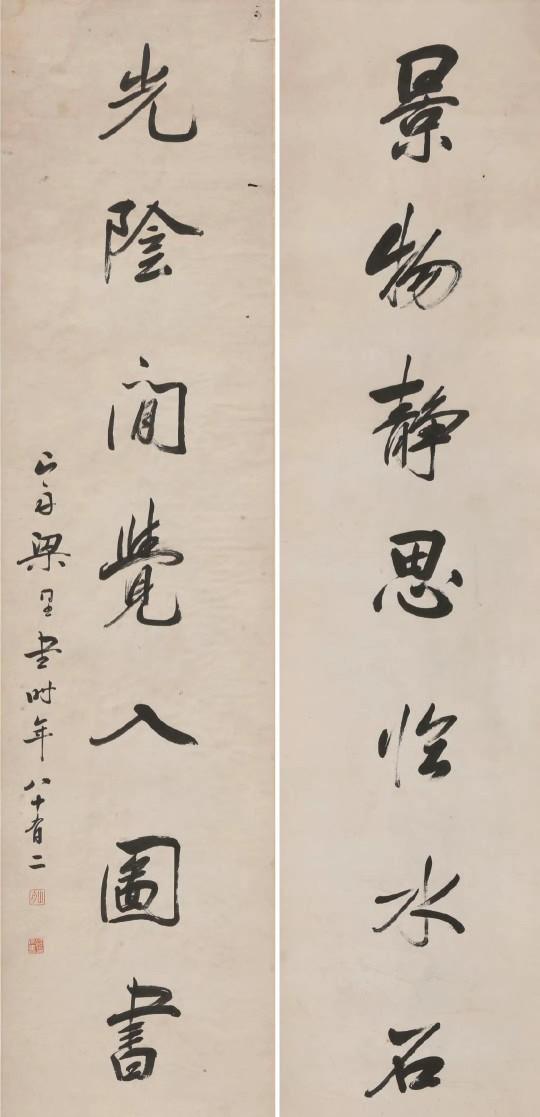 景物静思臨水石
光陰閒覺入圖書
山舟梁同書時年八十有二